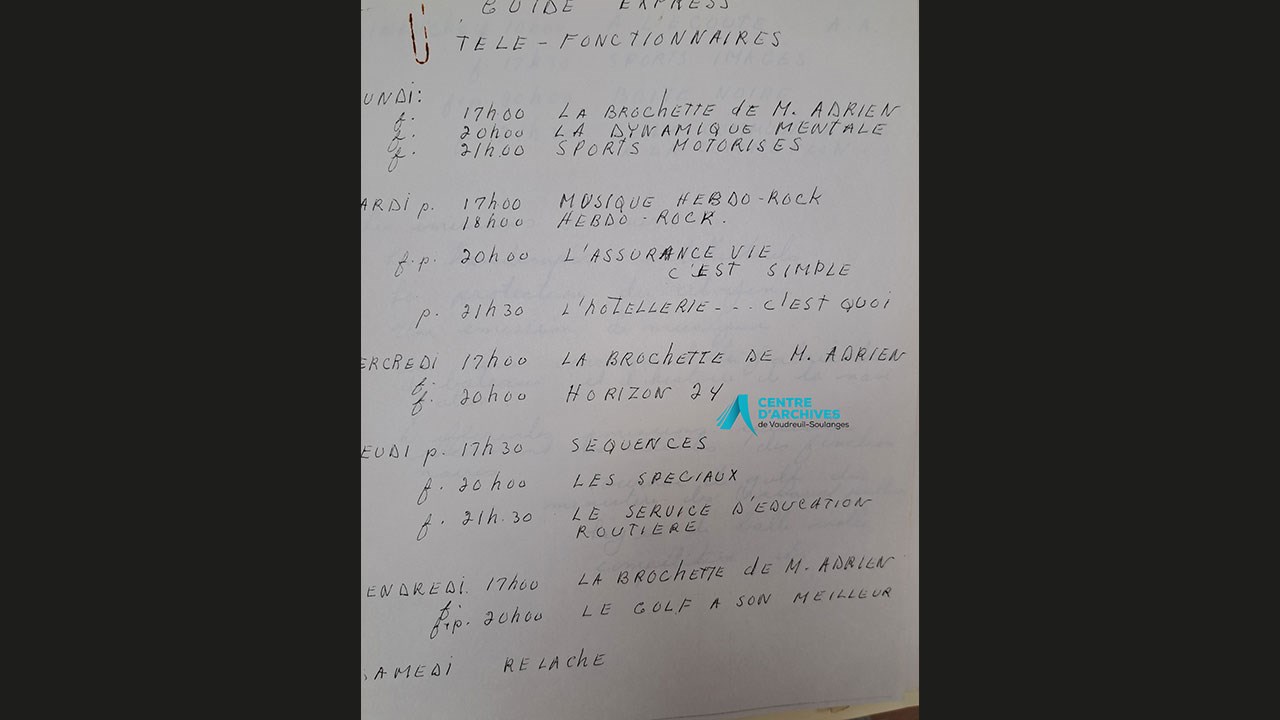 GUIDE EXPRESS
TELE-FONCTIONNAIRES
UNDI:
f. 17h00 LA BROCHETTE de M. ADRIEN
f. 20h00 LA DYNAMIQUE MENTALE
f. 21h00 SPORTS MOTORISES
ARDI p. 17h00 MUSIQUE HEBDO-ROCK
18h00 HEBDO-ROCK.
f.p. 20h00 L'ASSURANCE VIE
C'EST SIMPLE
p. 21h30 L'hOTELLERIE--- C'EST QUOI
ERCREDI 17h00 LA BROCHETTE DE M. ADRIEN
f.
f. 20h00 HORIZON 24
CENTRE
D'ARCHIVES
de Vaudreuil-Soulanges
EUDI p. 17h30 SEQUENCES
f. 20h00 LES SPECIAUX
f. 21h.30 LE SERVICE D'EDUCATION
ROUTIERE
ENDREDI. 17h00 LA BROCHETTE de M. ADRIEN
f.
f.p. 20h00 LE GOLF A SON MEILLEUR
SAMEDI RELACHE